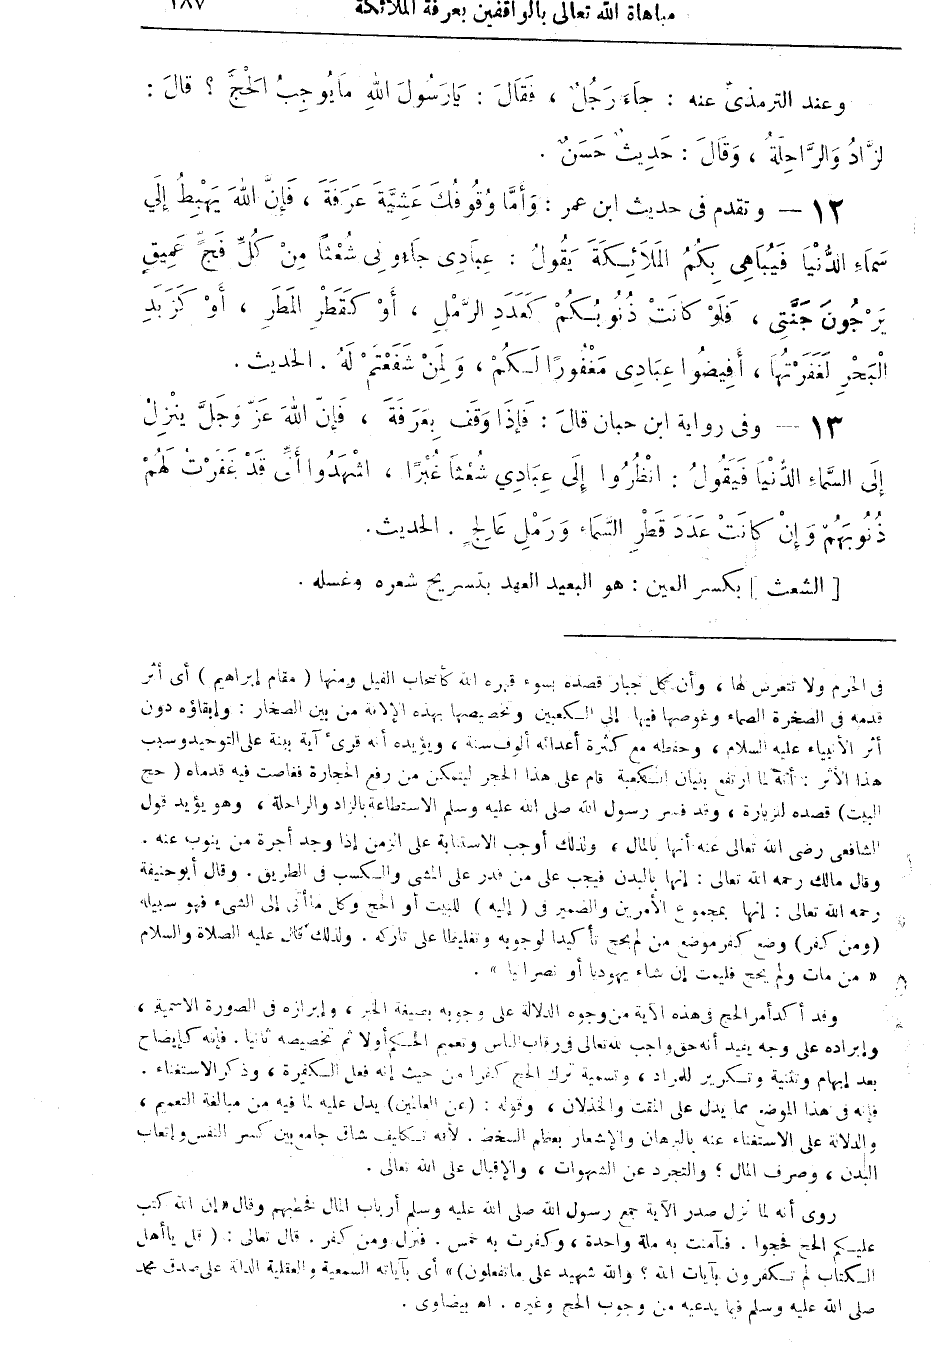 مباهاة الله تعالى بالواقفين بعرفة الملائكة ١٨٧
وعند الترمذى عنه : جَاءَ رَجُلٌ ، فَقَالَ : يَارَسُولَ اللهِ مَايُوجِبُ الحَجَّ ؟ قالَ :
لزَّادُ وَالرَّاحِلَةُ ، وَقَالَ : حَدِيثٌ حَسَنٌ .
١٢ — وتقدم فى حديث ابن عمر : وَأَمَّا وُقُوفُكَ عَشِيَّةَ عَرَفَةَ ، فَإِنَّ اللهَ يَهْبِطُ إِلَى
سَمَاءِ الدُّنْيَا فَيُبَاهِى بِكُمُ المَلَائِكَةَ يَقُولُ : عِبَادِى جَاءُونِى شُعْثًا مِنْ كُلِّ فَجٍّ عَمِيقٍ
يَرْجُونَ جَنَّتِى ، فَلَوْ كَانَتْ ذُنُوبُكُمْ كَعَدَدِ الرَّمْلِ ، أَوْ كَقَطْرِ المَطَرِ ، أَوْ كَزَبَدِ
الْبَحْرِ لَغَفَرْتُهَا ، أَفِيضُوا عِبَادِى مَغْفُورًا لَكُمْ ، وَلِمَنْ شَفَعْتُمْ لَهُ . الحديث .
١٣ — وفى رواية ابن حبان قالَ : فَإِذَا وَقَفَ بِعَرَفَةَ ، فَإِنَّ اللهَ عَزَّ وَجَلَّ يَنْزِلُ
إِلَى السَّمَاءِ الدُّنْيَا فَيَقُولُ : انْظُرُوا إِلَى عِبَادِي شُعْثًا غُبْرًا ، اشْهَدُوا أَنِّى قَدْ غَفَرْتُ لَهُمْ
ذُنُوبَهُمْ وَإِنْ كَانَتْ عَدَدَ قَطْرِ السَّمَاءِ وَرَمْلِ عَالِجٍ . الحديث .
[ الشعث ] بكسر العين : هو البعيد العهد بتسريح شعره وغسله .
فى الحرم ولا تتعرض لها ، وأن كل جبار قصده بسوء قهره الله كأصحاب الفيل ومنها ( مقام إبراهيم ) أى أثر
قدمه فى الصخرة الصماء وغوصها فيها إلى الكعبين وتخصيصها بهذه الإلانة من بين الصخار : وإبقاؤه دون
أثر الأنبياء عليه السلام ، وحفظه مع كثرة أعدائه ألوف سنة ، ويؤيده أنه قرىء آية بينة على التوحيد وسبب
هذا الأثر : أنه لما ارتفع بنيان الكعبة قام على هذا الحجر ليتمكن من رفع الحجارة فغاصت فيه قدماه ( حج
البيت ) قصده للزيارة ، وقد فسر رسول الله صلى الله عليه وسلم الاستطاعة بالزاد والراحلة ، وهو يؤيد قول
الشافعى رضى الله تعالى عنه أنها بالمال ، ولذلك أوجب الاستنابة على الزمن إذا وجد أجرة من ينوب عنه .
وقال مالك رحمه الله تعالى : إنها بالبدن فيجب على من قدر على المشى والكسب فى الطريق . وقال أبو حنيفة
رحمه الله تعالى : إنها بمجموع الأمرين والضمير فى ( إليه ) للبيت أو الحج وكل ما أتى إلى الشىء فهو سبيله
(ومن كفر) وضع كفر موضع من لم يحج تأكيدا لوجوبه وتغليظا على تاركه . ولذلك قال عليه الصلاة والسلام
« من مات ولم يحج فليمت إن شاء يهوديا أو نصرانيا » .
وقد أكد أمر الحج فى هذه الآية من وجوه الدلالة على وجوبه بصيغة الخبر ، وإبرازه فى الصورة الاسمية ،
وإيراده على وجه يفيد أنه حق واجب لله تعالى فى رقاب الناس وتعميم الحكم أولا ثم تخصيصه ثانيا . فإنه كإيضاح
بعد إبهام وتثنية وتكرير للمراد ، وتسمية ترك الحج كفرا من حيث إنه فعل الكفرة ، وذكر الاستغناء .
فإنه فى هذا الموضع مما يدل على المقت والخذلان ، وقوله : (عن العالمين) يدل عليه لما فيه من مبالغة التعميم ،
والدلالة على الاستغناء عنه بالبرهان والإشعار بعظم السخط . لأنه تكليف شاق جامع بين كسر النفس وإتعاب
البدن ، وصرف المال ؛ والتجرد عن الشهوات ، والإقبال على الله تعالى .
روى أنه لما نزل صدر الآية جمع رسول الله صلى الله عليه وسلم أرباب المال فخطبهم وقال « إن الله كتب
عليكم الحج فحجوا . فآمنت به ملة واحدة ، وكفرت به خمس . فنزل ومن كفر . قال تعالى : ( قل ياأهل
الكتاب لم تكفرون بآيات الله ؟ والله شهيد على ماتفعلون)» أى بآياته السمعية والعقلية الدالة على صدق محمد
صلى الله عليه وسلم فيما يدعيه من وجوب الحج وغيره . اه بيضاوى .